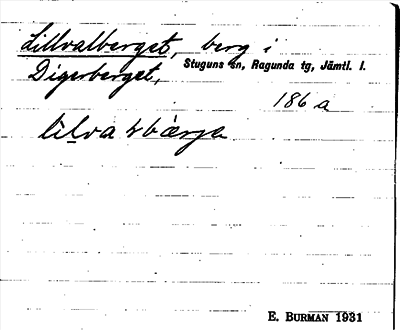 Lillvalberget, berg i
Stuguns sn, Ragunda tg, Jämtl. l.
Digerberget,
186 a
E. BURMAN 1931